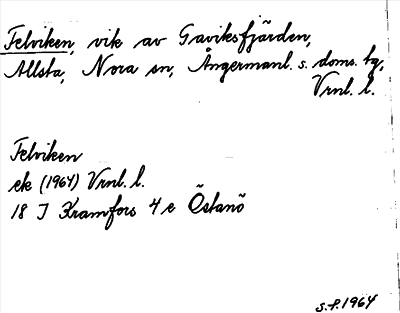 Felviken, vik av Gaviksfjärden,
Allsta, Nora sn, Ångermanl. s. doms. tg,
Vrnl. l.
Felviken
ek (1964) Vrnl. l.
18 J Kramfors 4 e Östanö
S.F. 1964